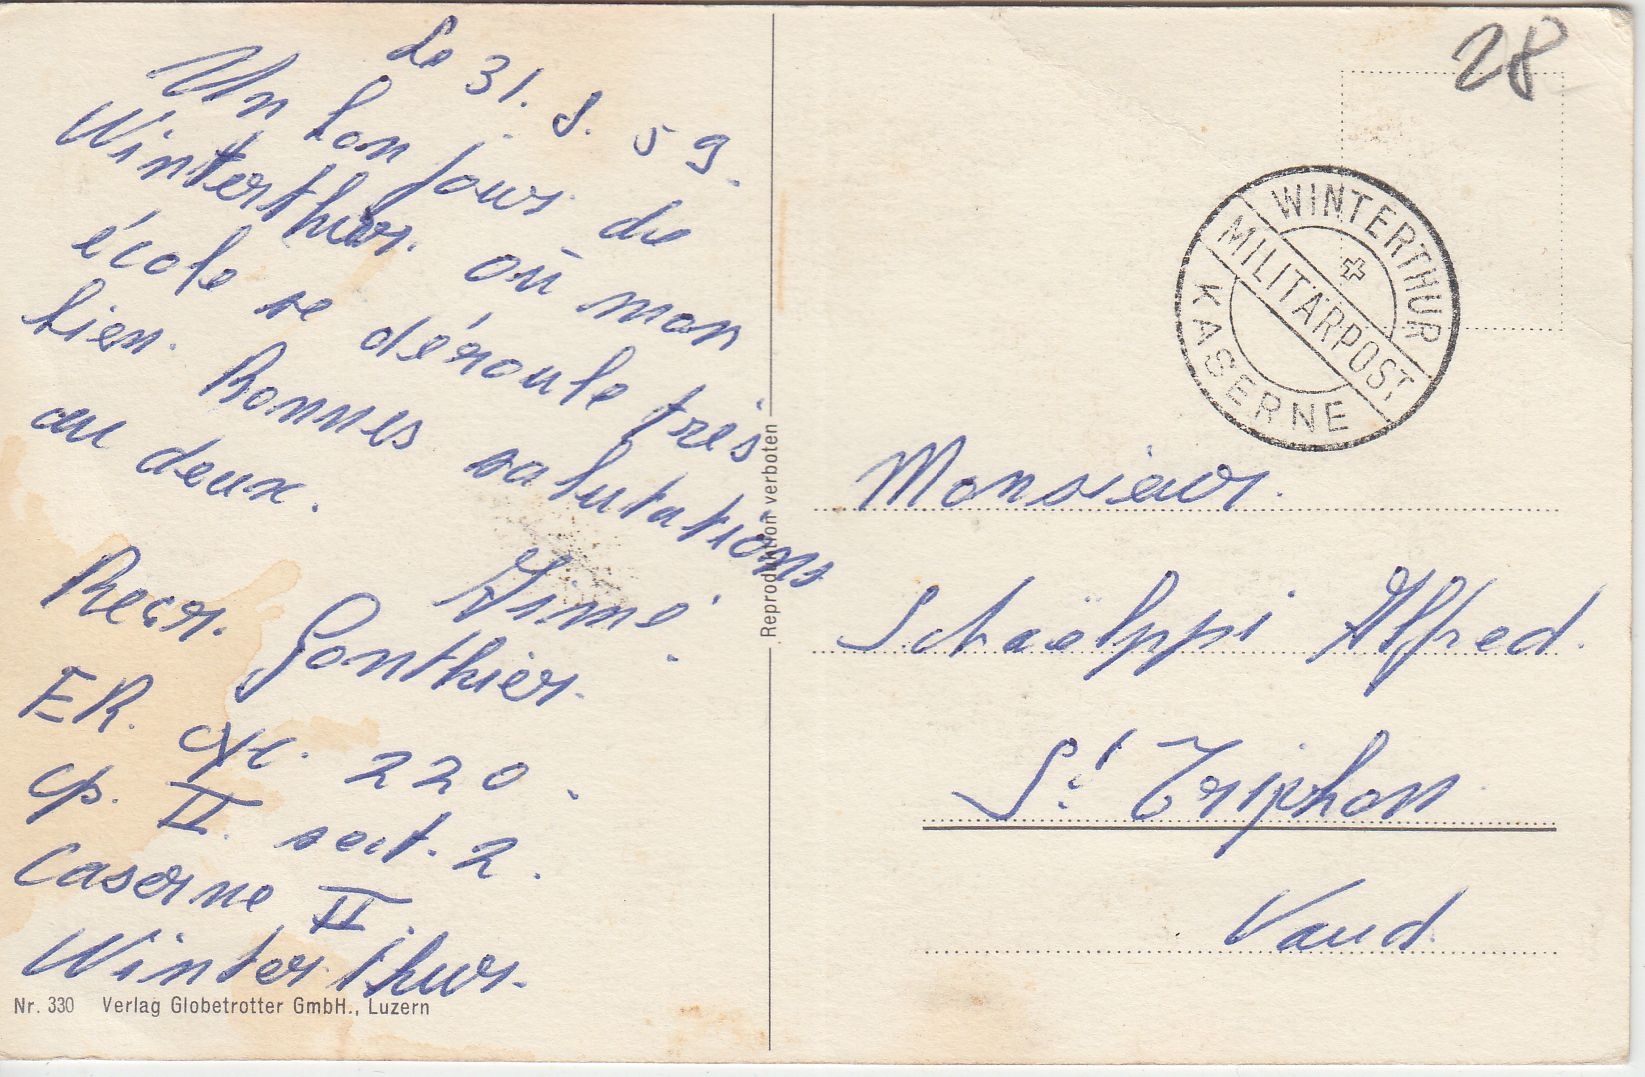 28
Le 31. 8. 59.
Un bon jour de
Winterthur. où mon
école se déroule très
bien. Bonnes salutations
au deux.
Aimé
Recr. Gonthier.
ER. cyc. 220.
cp. II. sect. 2.
Caserne II.
Winterthur.
Nr. 330 Verlag Globetrotter GmbH., Luzern
Reproduktion verboten
WINTERTHUR
MILITÄRPOST
KASERNE
Monsieur.
Schaëlppi Alfred.
St. Triphon
Vaud.